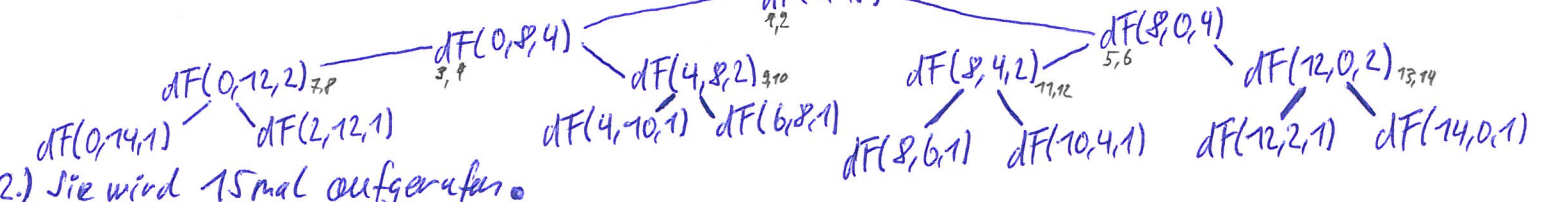 1,2
dF(0,8,4) dF(8,0,4)
3,4 5,6
dF(0,12,2) 7,8 dF(4,8,2) 9,10 dF(8,4,2) 11,12 dF(12,0,2) 13,14
dF(0,14,1) dF(2,12,1) dF(4,10,1) dF(6,8,1) dF(8,6,1) dF(10,4,1) dF(12,2,1) dF(14,0,1)
2.) Sie wird 15 mal aufgerufen.